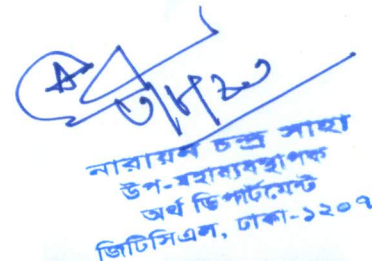 ৩/৮/২০
নারায়ন চন্দ্র সাহা
উপ-মহাব্যবস্থাপক
অর্থ ডিপার্টমেন্ট
জিটিসিএল, ঢাকা-১২০৭